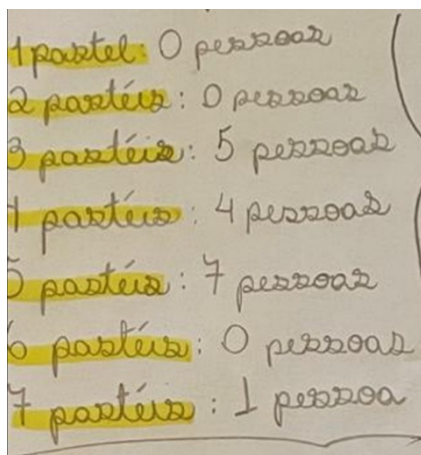 1 pastel: 0 pessoas
2 pastéis: 0 pessoas
3 pastéis: 5 pessoas
4 pastéis: 4 pessoas
5 pastéis: 7 pessoas
6 pastéis: 0 pessoas
7 pastéis: 1 pessoa